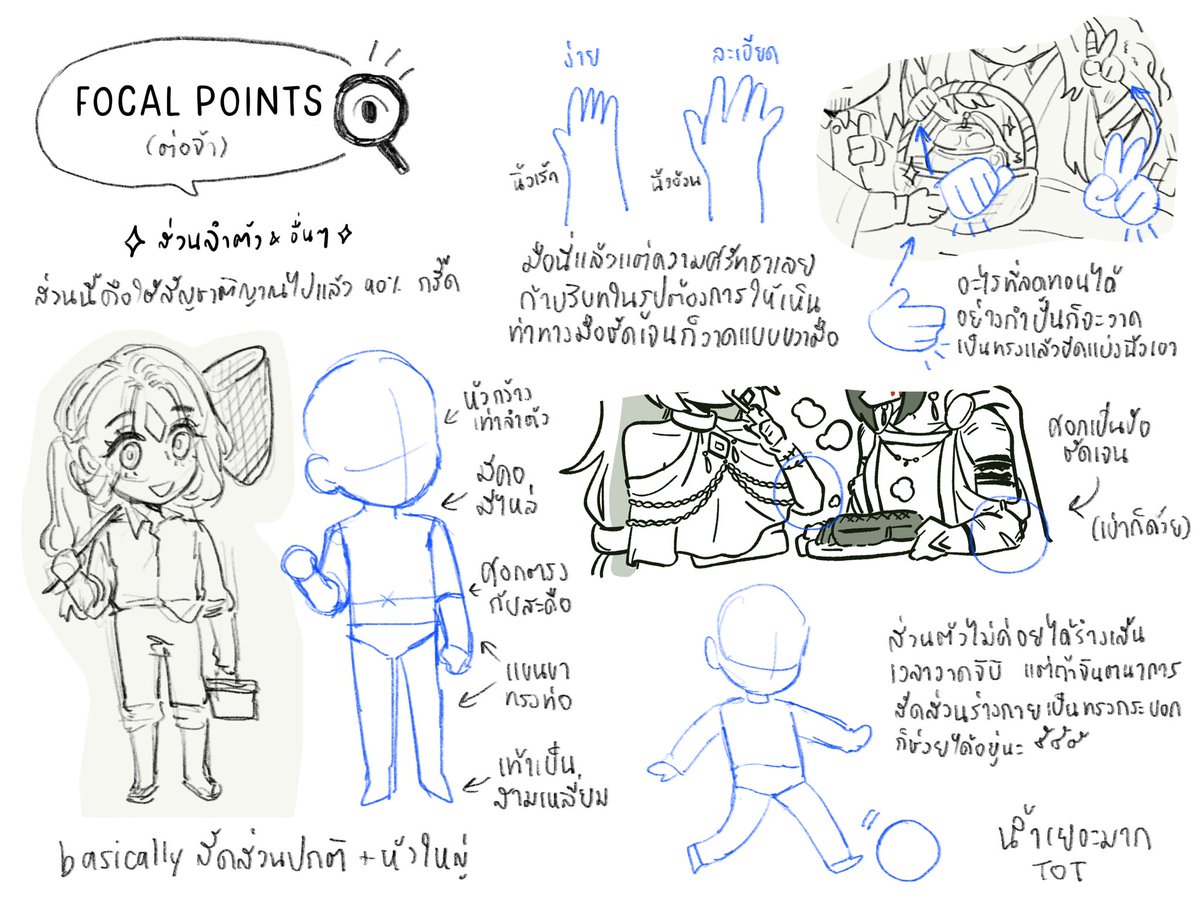 FOCAL POINTS
(ต่อจ้า)
ส่วนลำตัว & อื่นๆ
ส่วนนี้คือใช้สัญชาตญาณไปแล้ว 90% กรี๊ด
หัวกว้าง
เท่าลำตัว
มีคอ
มีไหล่
ศอกตรง
กับสะดือ
แขนขา
ทรงท่อ
เท้าเป็น
สามเหลี่ยม
basically สัดส่วนปกติ + หัวใหญ่
ง่าย
ละเอียด
นิ้วเรีก
นิ้วอ้วน
มือนี่แล้วแต่ความศรัทธาเลย
ถ้าบริบทในรูปต้องการให้เห็น
ท่าทางมือชัดเจนก็วาดแบบขวามือ
อะไรที่ลดทอนได้
อย่างกำปั้นก็จะวาด
เป็นทรงแล้วขีดแบ่งนิ้วเอา
ศอกเป็นข้อ
ชัดเจน
(เข่าก็ด้วย)
ส่วนตัวไม่ค่อยได้ร่างเส้น
เวลาวาดจิบิ แต่ถ้าจินตนาการ
สัดส่วนร่างกายเป็นทรงกระบอก
ก็ช่วยได้อยู่นะ
น้ำเยอะมาก
TOT